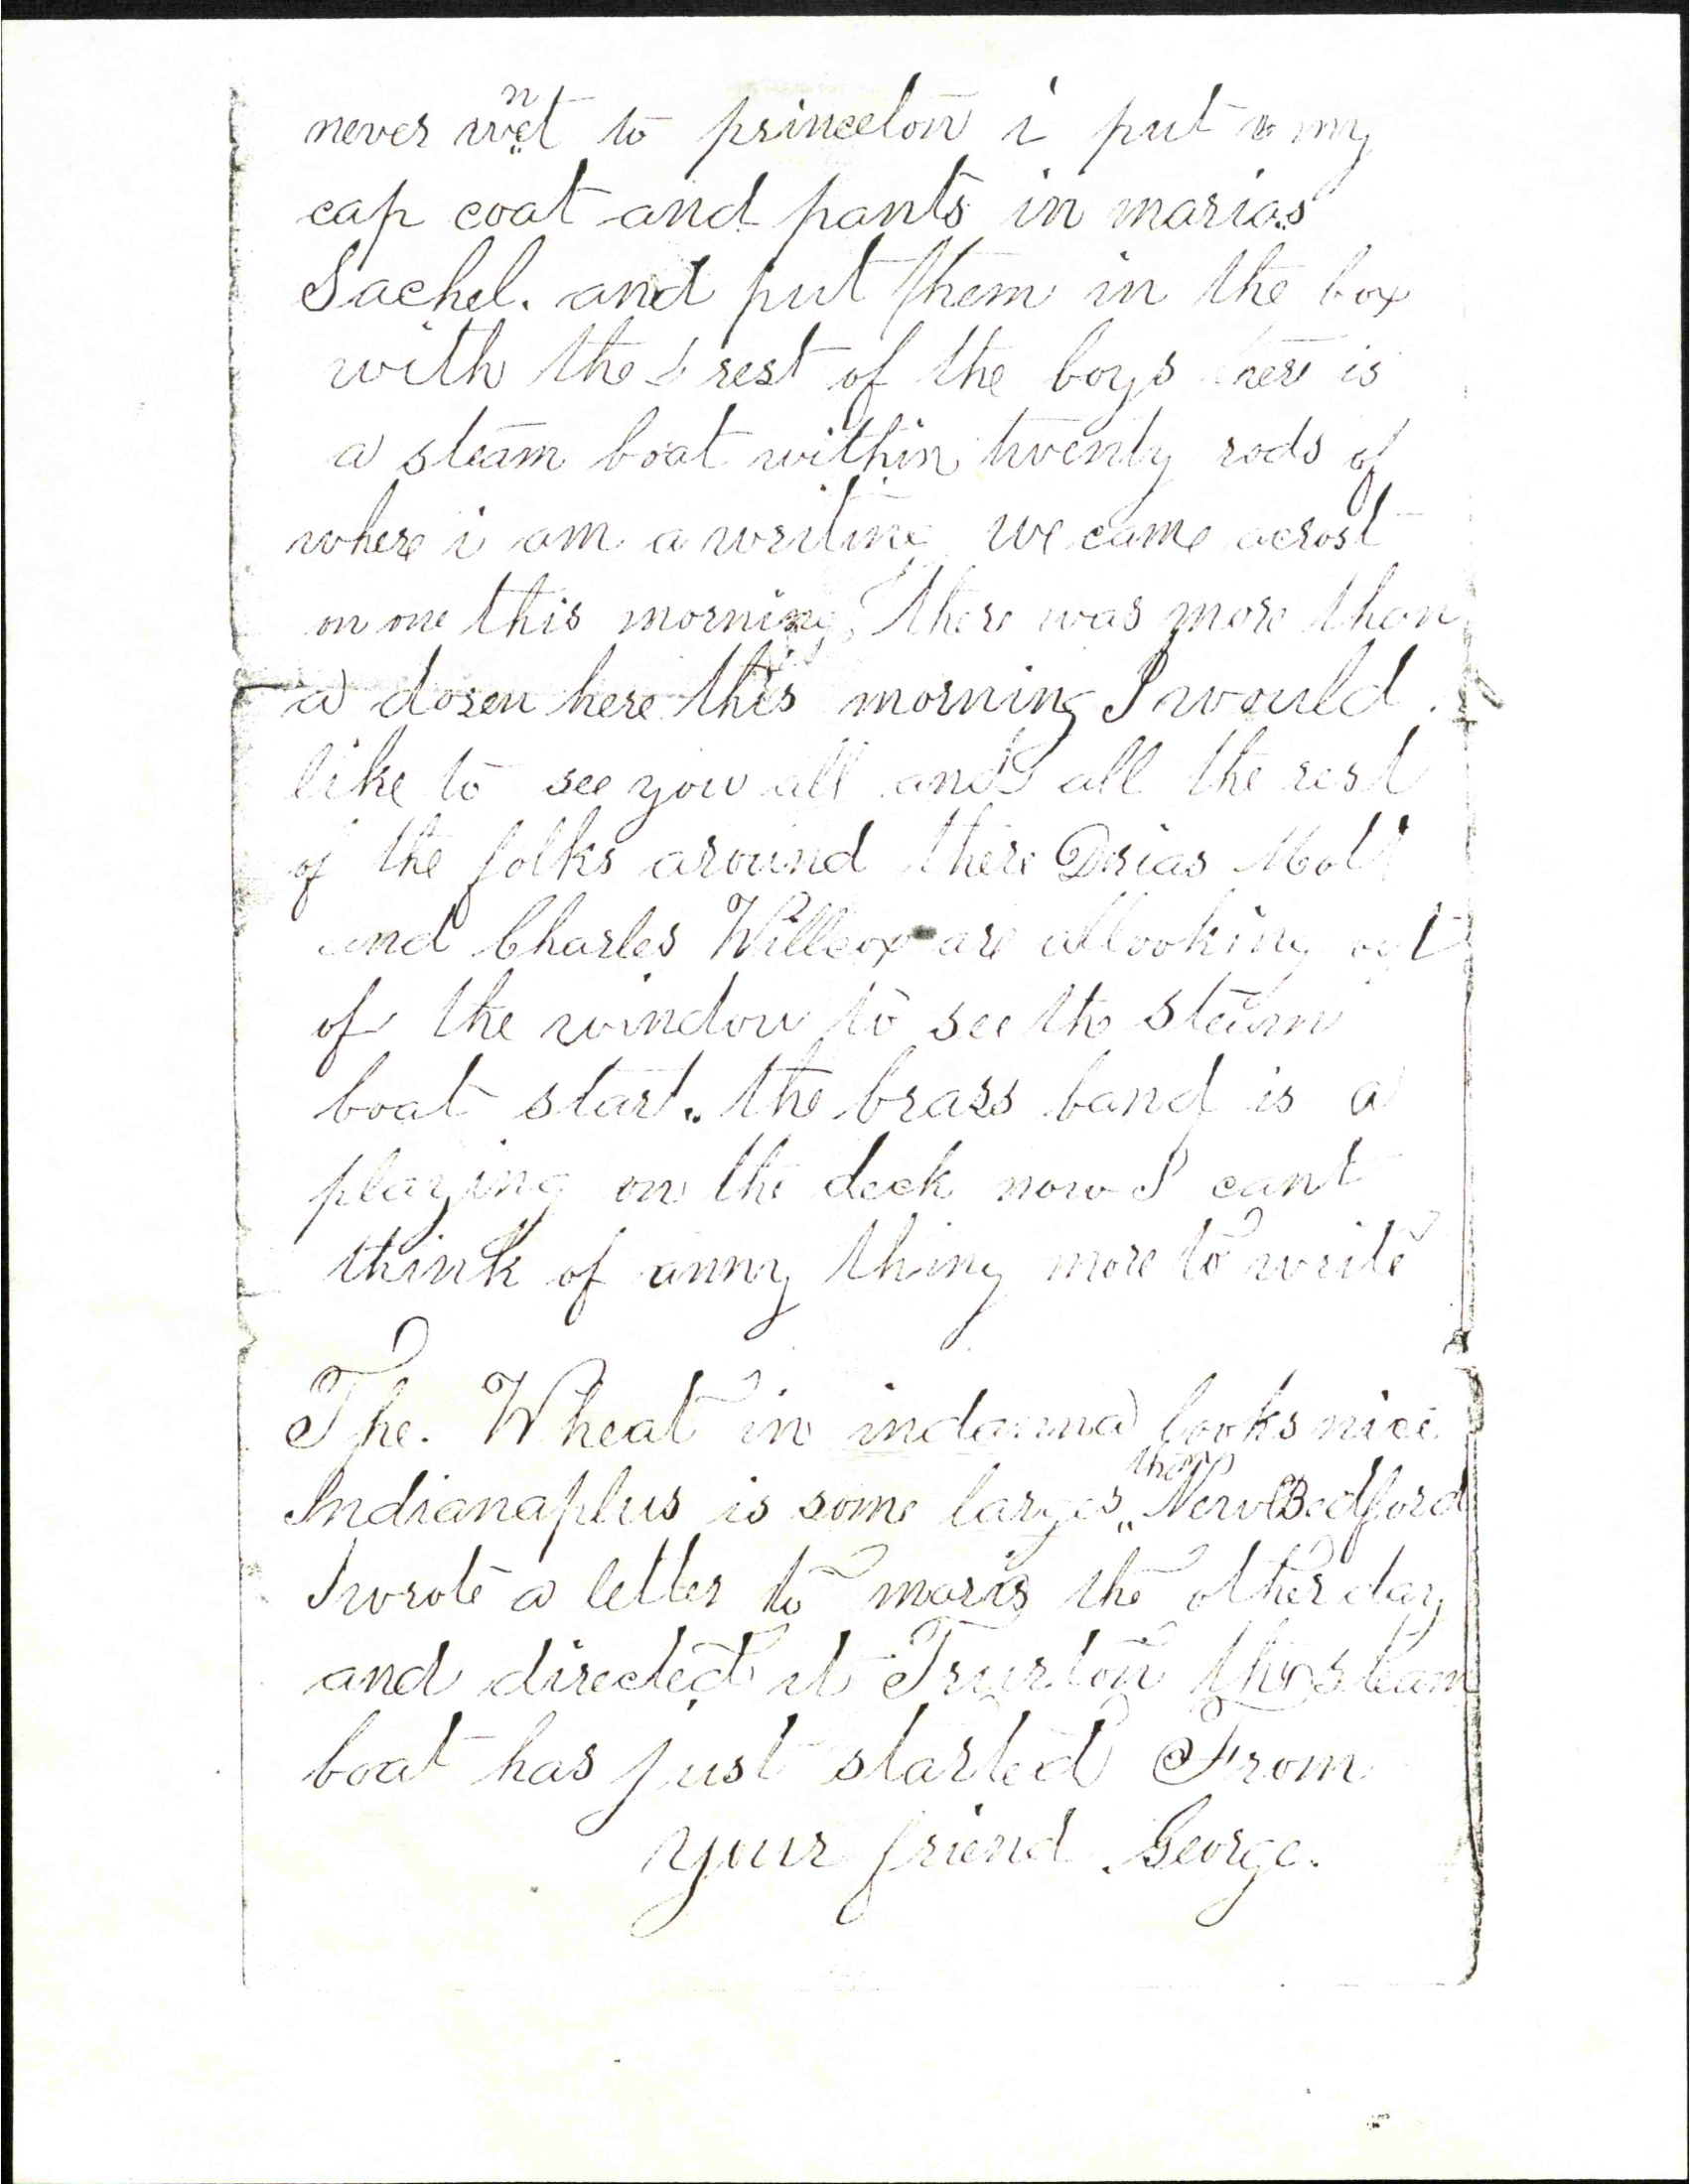 never went to princeton i put my
cap coat and pants in marias
Sachel. and put them in the box
with the rest of the boys here is
a steam boat within twenty rods of
where i am a writing we came acrost
on one this morning, there was more than
a dosen here this morning I would
like to see you all and all the rest
of the folks around there Drias
and Charles Willcox are allooking out
of the window to see the steam
boat start. the brass band is a
playing on the deck now I cant
think of anny thing more to write
The. Wheat in indanna looks nice
Indianaplus is some larger than New Bedford
I wrote a letter to the other day
and directed it the steam
boat has just started From
your friend George.